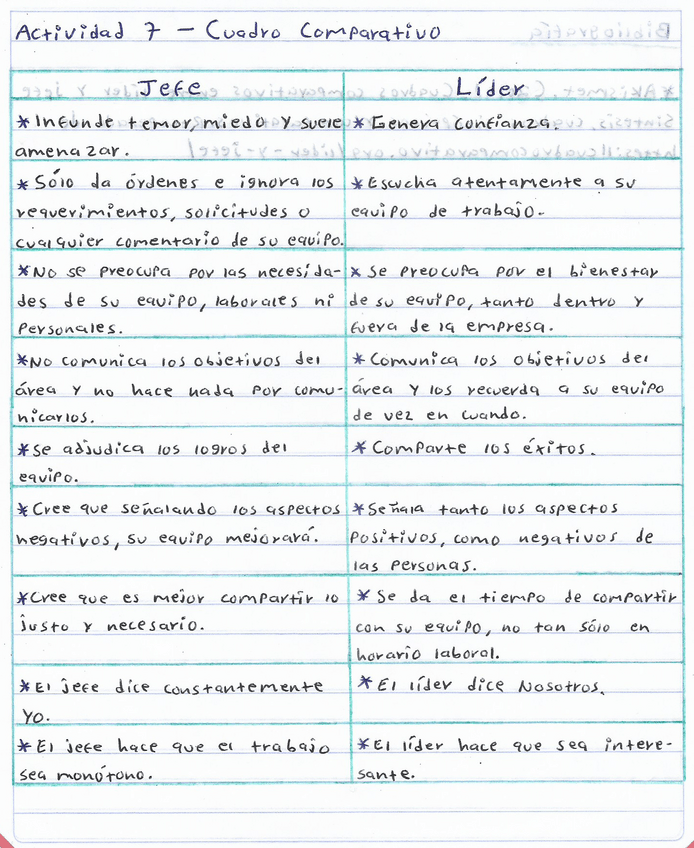 Actividad 7 - Cuadro Comparativo
Jefe
Líder
* Infunde temor, miedo y suele
amenazar.
* Genera confianza.
* Sólo da órdenes e ignora los
requerimientos, solicitudes o
cualquier comentario de su equipo.
* Escucha atentamente a su
equipo de trabajo.
* No se preocupa por las necesida-
des de su equipo, laborales ni
personales.
* Se preocupa por el bienestar
de su equipo, tanto dentro y
fuera de la empresa.
* No comunica los objetivos del
área y no hace nada por comu-
nicarlos.
* Comunica los objetivos del
área y los recuerda a su equipo
de vez en cuando.
* Se adjudica los logros del
equipo.
* Comparte los éxitos.
* Cree que señalando los aspectos
negativos, su equipo mejorará.
* Señala tanto los aspectos
positivos, como negativos de
las personas.
* Cree que es mejor compartir lo
justo y necesario.
* Se da el tiempo de compartir
con su equipo, no tan sólo en
horario laboral.
* El jefe dice constantemente
Yo.
* El líder dice Nosotros.
* El jefe hace que el trabajo
sea monótono.
* El líder hace que sea intere-
sante.